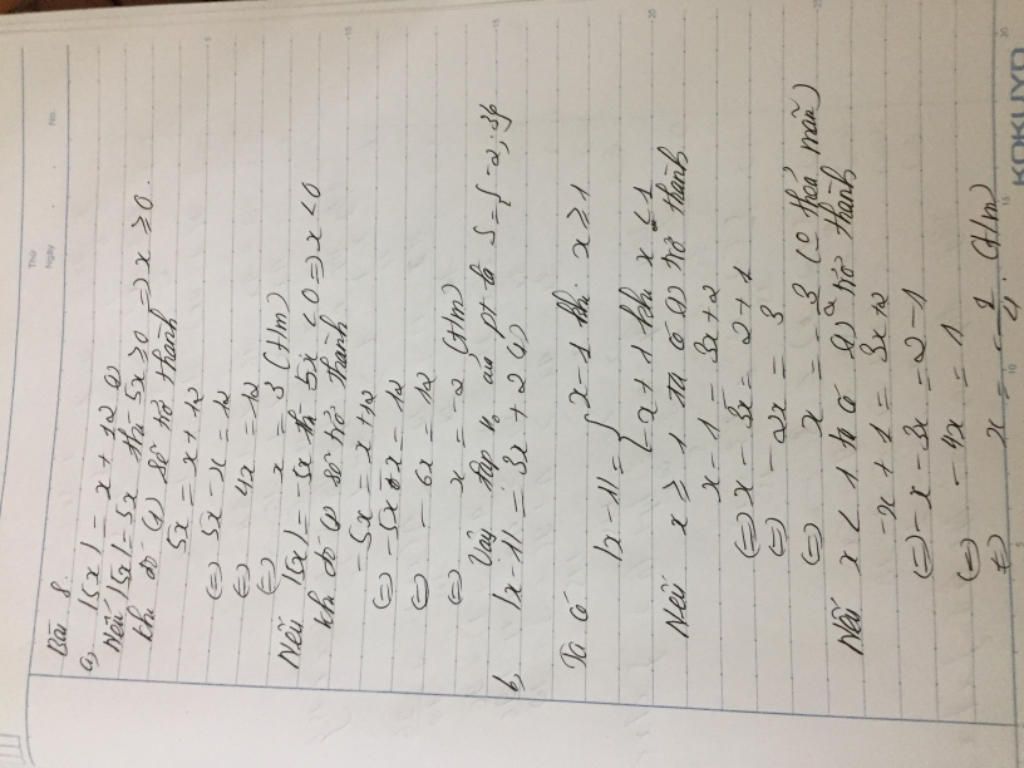 Thứ
Ngày
No.
Bài 8.
a, |5x| = x + 12 (1)
Nếu |5x| = 5x thì 5x ≥ 0 => x ≥ 0.
khi đó (1) sẽ trở thành
5x = x + 12
(=) 5x - x = 12
(=) 4x = 12
(=) x = 3 (t/m)
Nếu |5x| = -5x thì 5x < 0 => x < 0
khi đó (1) sẽ trở thành
-5x = x + 12
(=) -5x - x = 12
(=) -6x = 12
(=) x = -2 (t/m)
Vậy tập no của pt là S = {-2; 3}
b, |x-1| = 3x + 2 (1)
Ta có
|x-1| = { x - 1 khi x ≥ 1
-x + 1 khi x < 1
Nếu x ≥ 1 ta có (1) trở thành
x - 1 = 3x + 2
(=) x - 3x = 2 + 1
(=) -2x = 3
(=) x = -3/2 (ko thoả mãn)
Nếu x < 1 ta có (1) trở thành
-x + 1 = 3x + 2
(=) -x - 3x = 2 - 1
(=) -4x = 1
(=) x = -1/4. (t/m)
KOKUYO